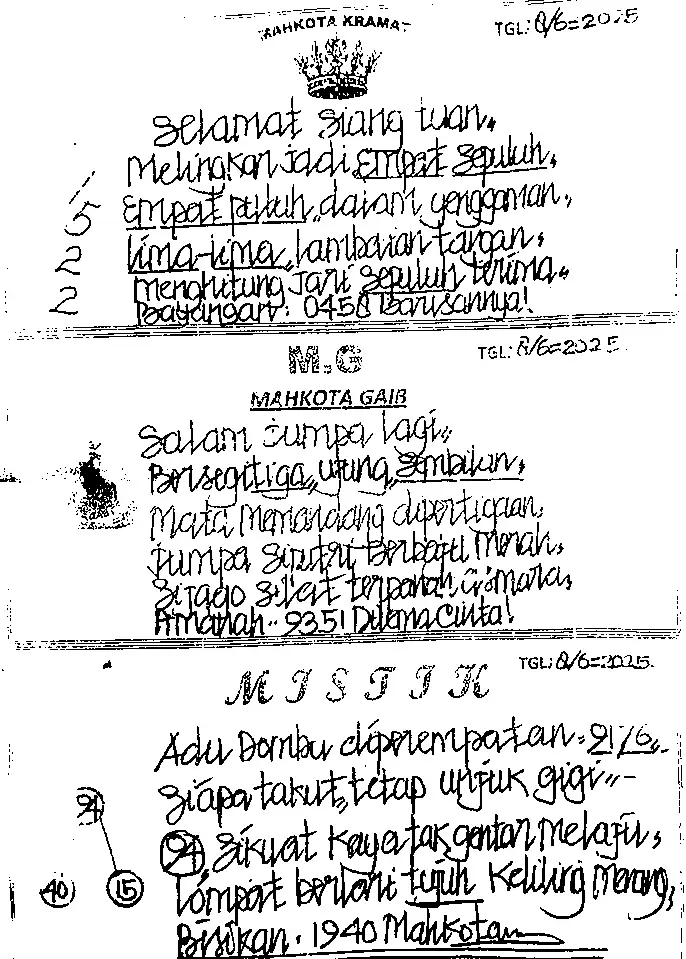 MAHKOTA KRAMAT
TGL: 8/6=2025
Selamat Siang tuan,,
Melingkar jadi empat sepuluh,
1
5
2
2
Empat puluh,, dalam genggaman,
lima-lima,, lambaian tangan,
menghitung jari sepuluh terima,,
Bayangan: 0458 Barisannya!
M.G
TGL: 8/6=2025
MAHKOTA GAIB
Salam jumpa lagi,,
Bersegitiga,, ujung,, sembilan,
Mata memandang dipertigaan,
jumpa siputri berbaju merah,
Sijago silat terpanah asmara,
Amanah·· 9351 Dilema Cinta!
MISTIK
TGL: 8/6=2025.
Adu Domba diperempatan = 21/6,,
Siapa takut,, tetap unjuk gigi,,-
94
94 Sikuat kaya tak gentar melaju,
40 15
lompat berlari tujuh keliling menang,
Bisikan · 1940 Mahkota